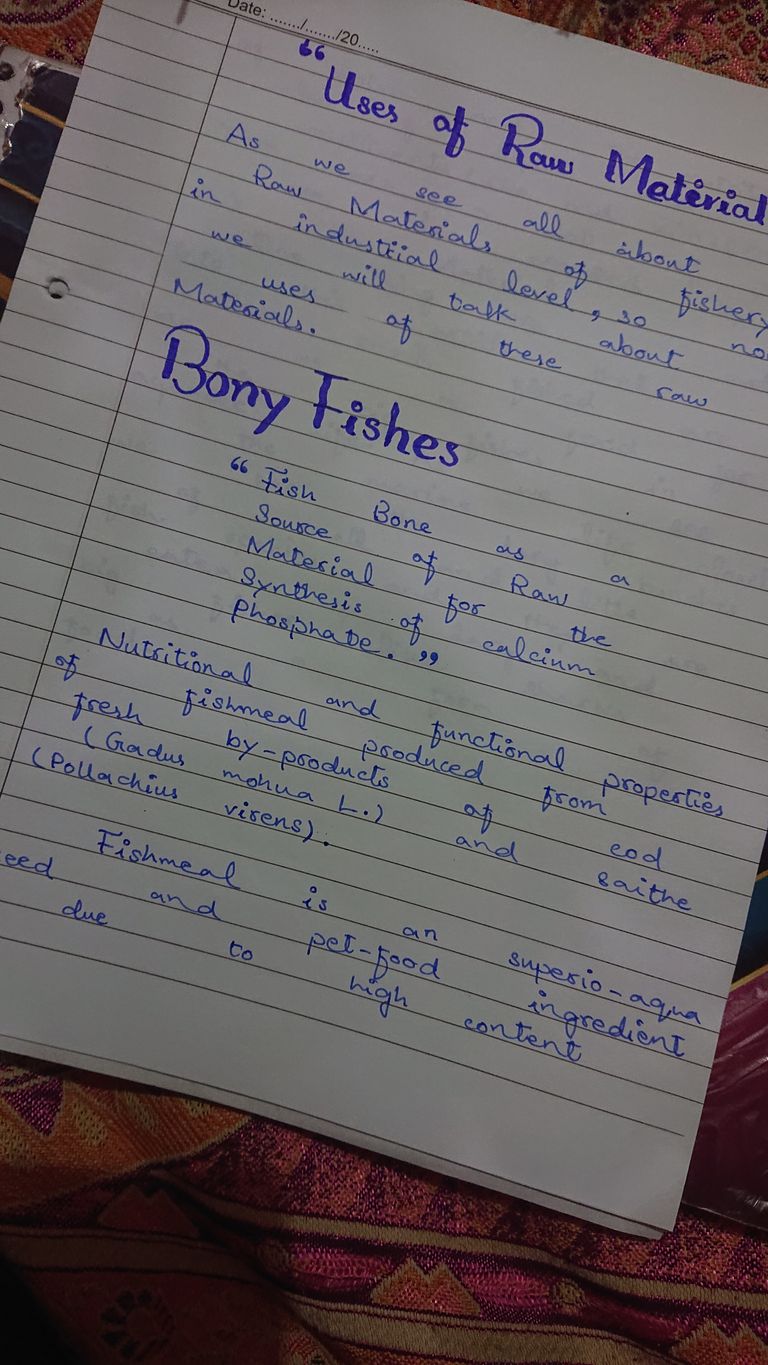 Date: ......./......./20.....
“Uses of Raw Material
As we see all about
Raw Materials of fishery
in industrial level, so no
we will talk about
uses of these raw
Materials.
Bony Fishes
“ Fish Bone as a
Source of Raw
Material for the
Synthesis of calcium
phosphate. ”
Nutritional and functional properties
of fishmeal produced from
fresh by-products of cod
(Gadus mohua L.) and saithe
(Pollachius virens).
Fishmeal is an superio-aqua
eed and pet-food ingredient
due to high content